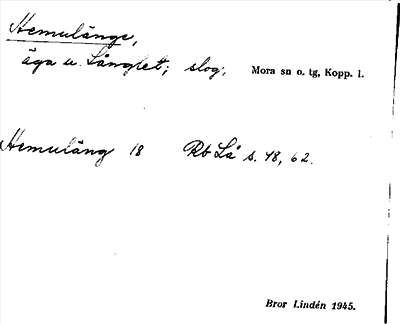 Hemulänge,
äga u. Långlet; slog. Mora sn o. tg, Kopp. l.
Hemuläng 18 Rb Lå s. 48, 62.
Bror Lindén 1945.